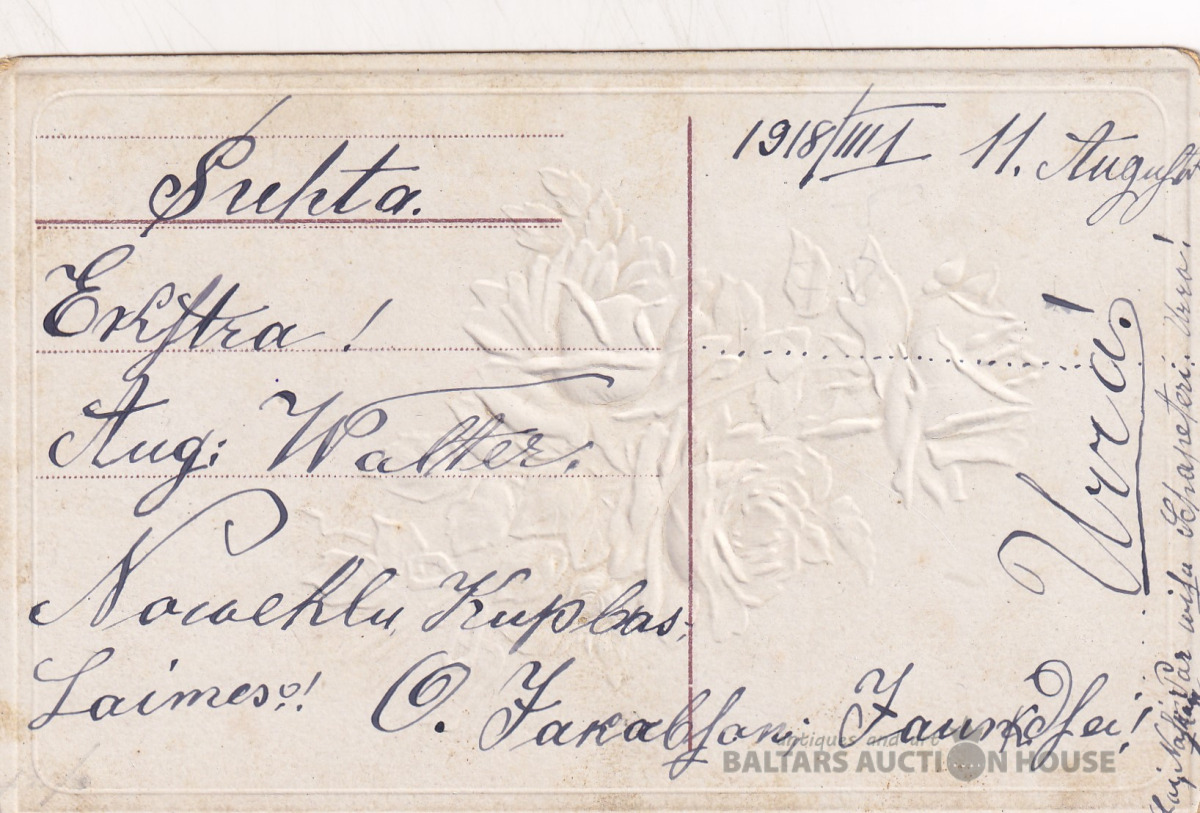 Suhta.
1918/IIII 11. August
Erkstra!
Aug: Walter.
Nowehlu Kuplas
Laimes!
O. Jakabson
Urra!
par wisu Urra!
antiques and art
BALTARS AUCTION HOUSE